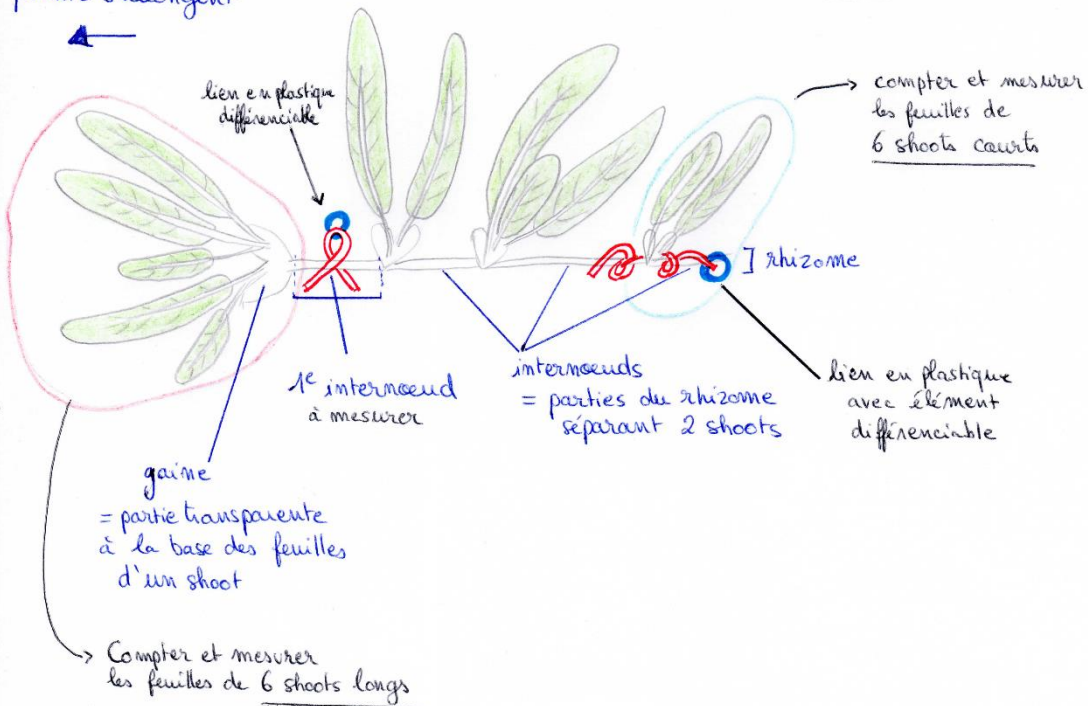 lien en plastique
différenciable
compter et mesurer
les feuilles de
6 shoots courts
] rhizome
1e internoeud
à mesurer
internoeuds
= parties du rhizome
séparant 2 shoots
lien en plastique
avec élément
différenciable
gaine
= partie transparente
à la base des feuilles
d'un shoot
Compter et mesurer
les feuilles de 6 shoots longs